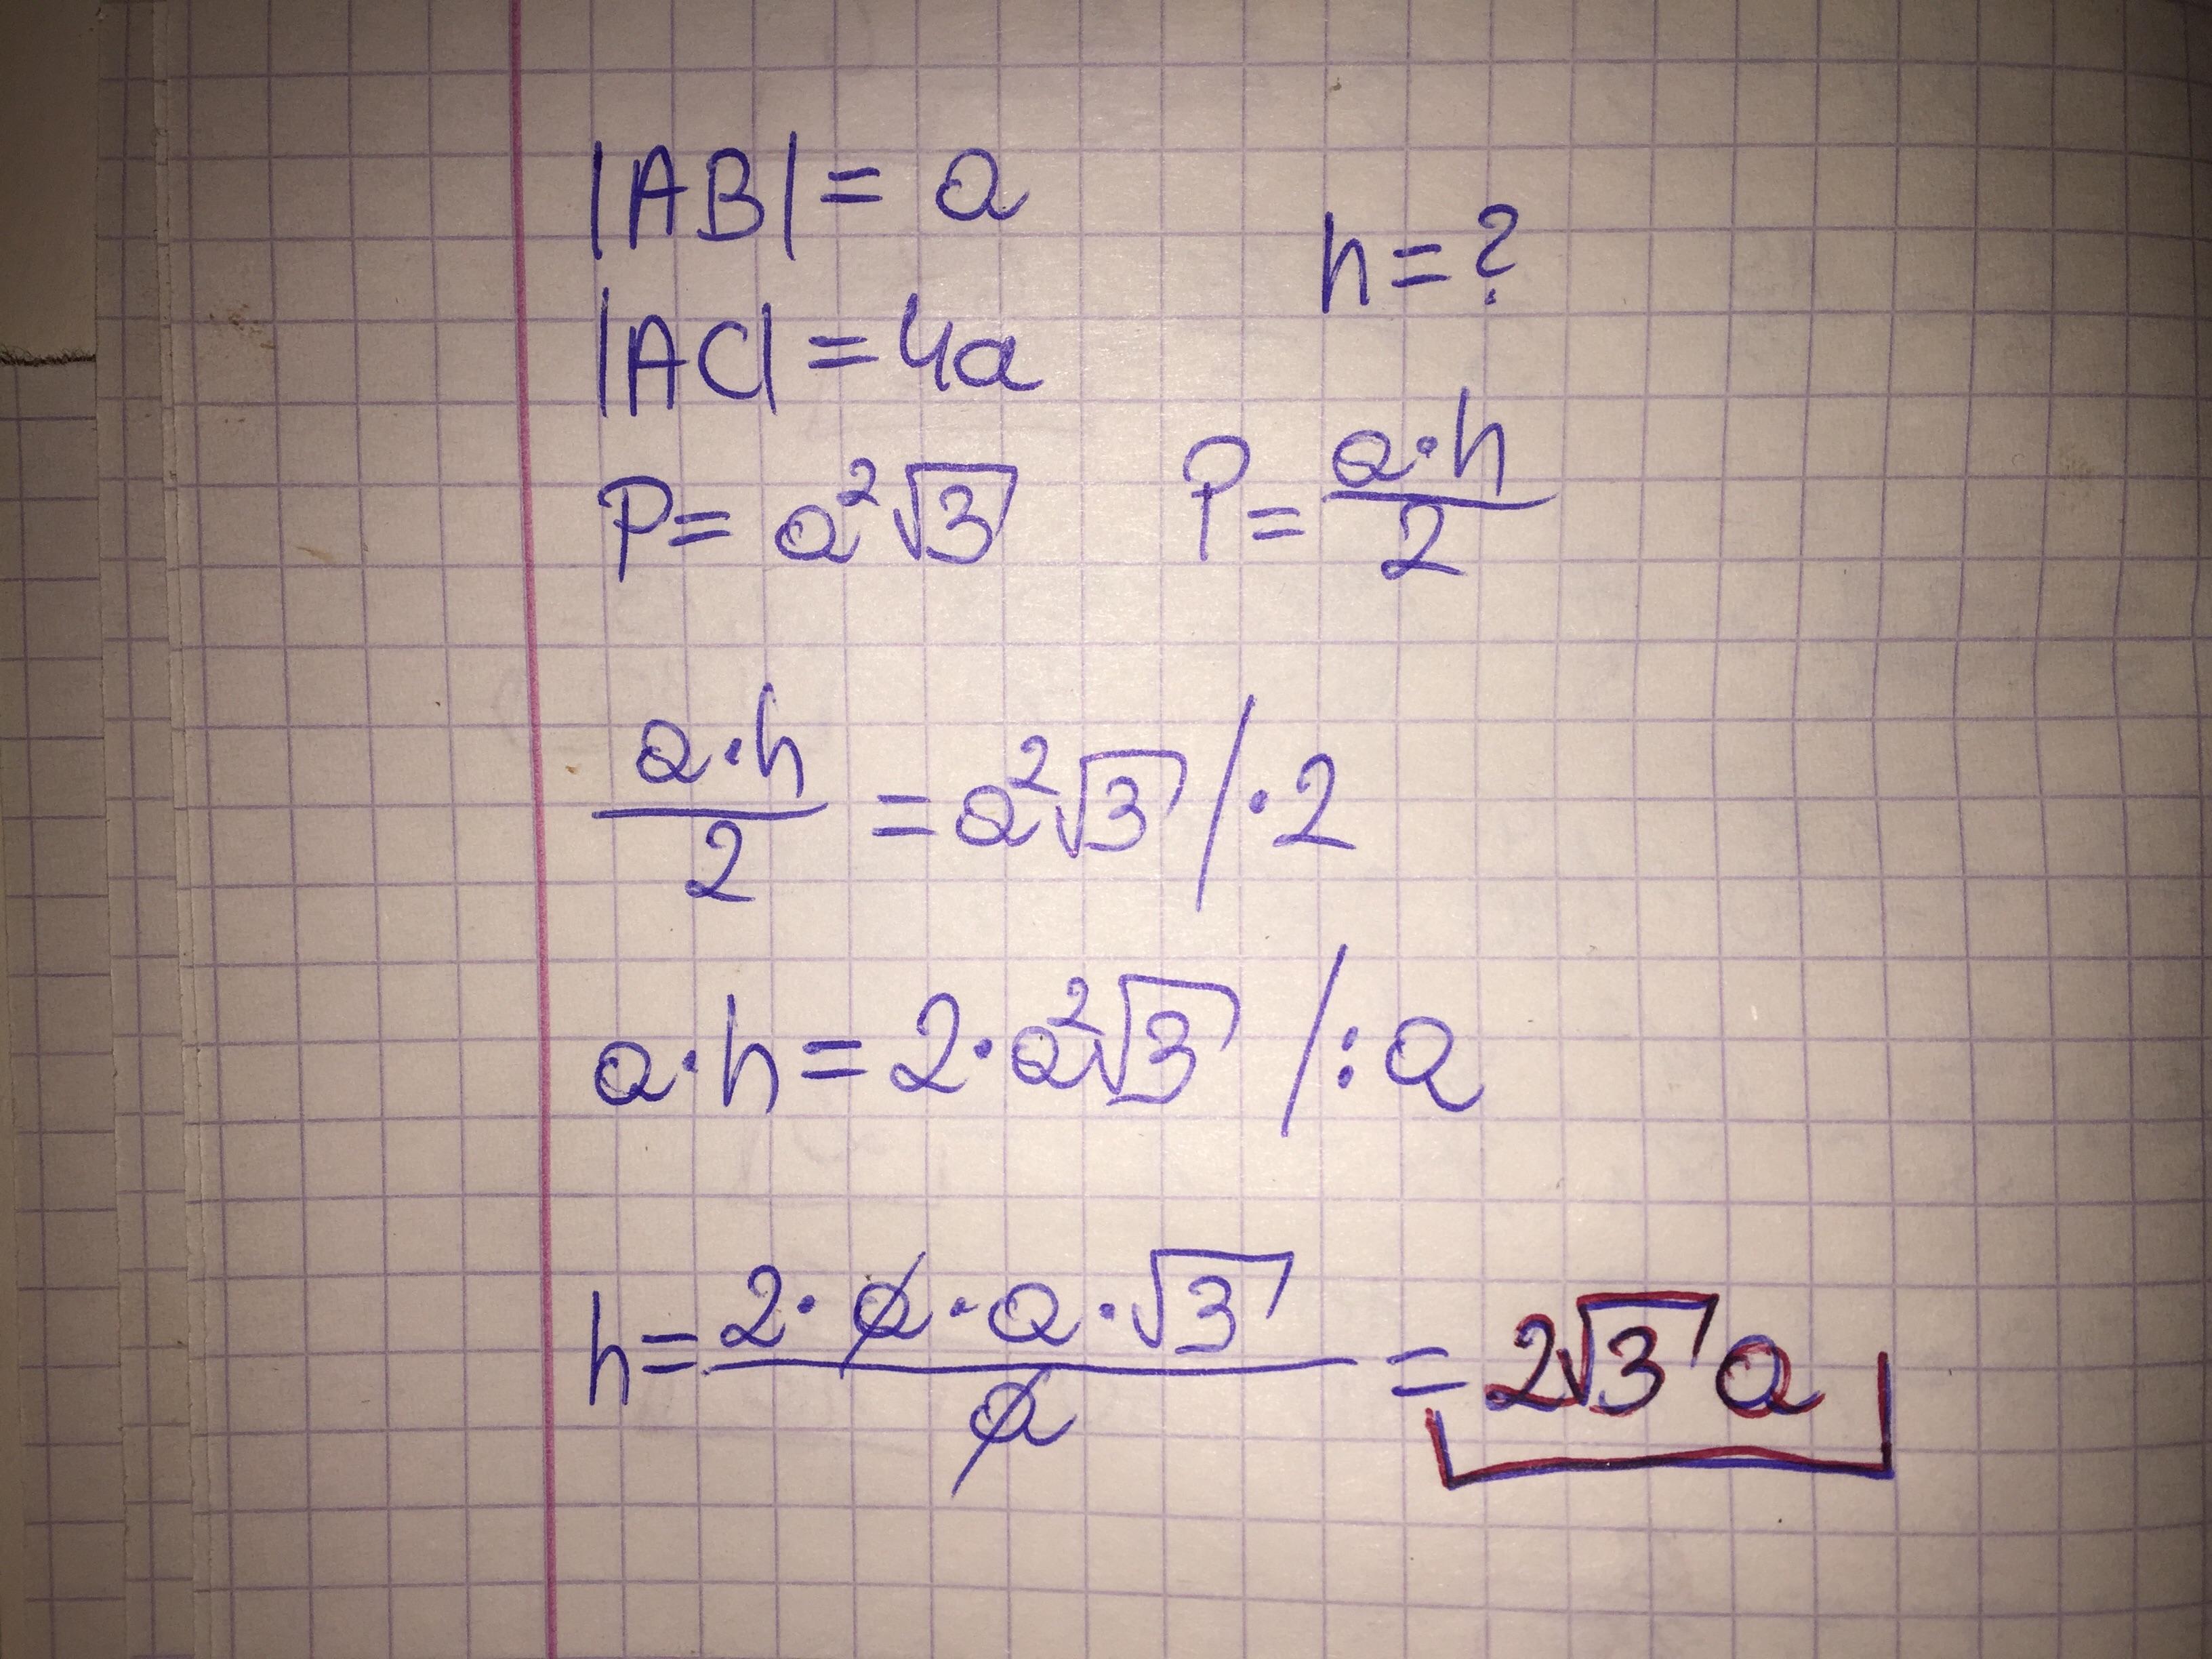 |AB| = a
h = ?
|AC| = 4a
P = a²√3
P = a·h/2
a·h/2 = a²√3 /·2
a·h = 2·a²√3 /:a
h = 2·a·a·√3/a = 2√3 a